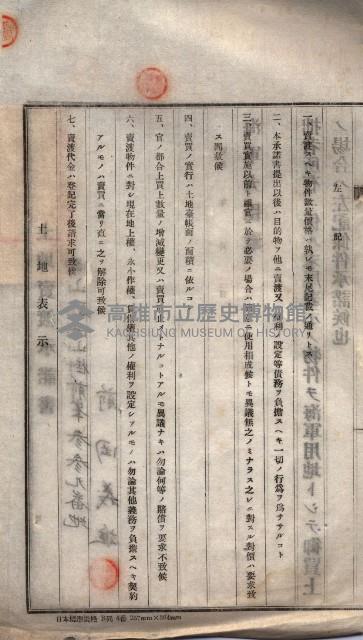 左記
一、賣渡スヘキ物件數量價格ハ執レモ末尾記載ノ通トス
二、本承諾書提出以後ハ目的物ヲ他ニ賣渡又ハ權利ノ設定等債務ヲ負擔スヘキ一切ノ行爲ヲ爲サヽルコト
三、賣買實施以前ト雖官ニ於テ必要ノ場合ハ ニ使用相成候トモ異議無之ノミナラス之レニ對スル對價ハ要求致
ス間敷候
四、賣買ノ實行ハ土地臺帳面ノ面積ニ依ルコト
五、官ノ都合上買上數量ノ增減變更又ハ賣買 トナルコトアルモ異議ナキハ勿論何等ノ賠償ヲ要求不致候
六、賣渡物件ニ對シ現在地上權、永小作權、 其他ノ權利ヲ設定シアルモノハ勿論其他義務ヲ負擔スヘキ契約
アルモノハ賣買ニ當リ直ニ之ヲ解除可致候
七、賣渡代金ハ登記完了後請求可致候
土地表示
高雄市立歷史博物館
KAOHSIUNG MUSEUM OF HISTORY
日本標準規格 B列 4番 257mm×364mm